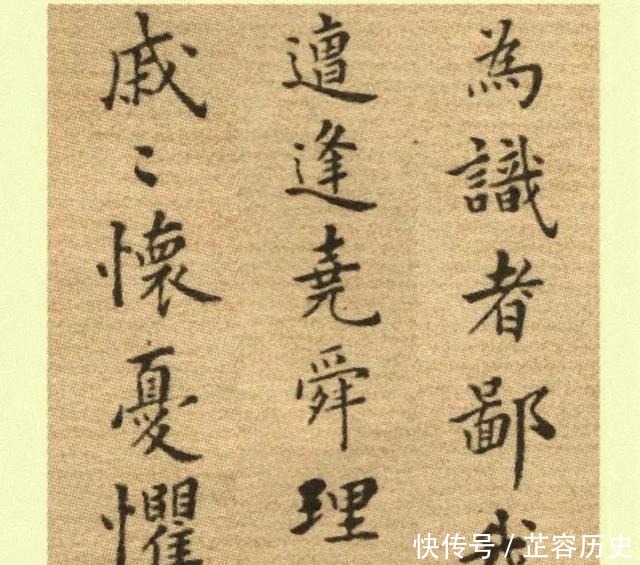 為識者鄙
遭逢堯舜理
戚〻懷憂懼
快传号 / 芷容历史